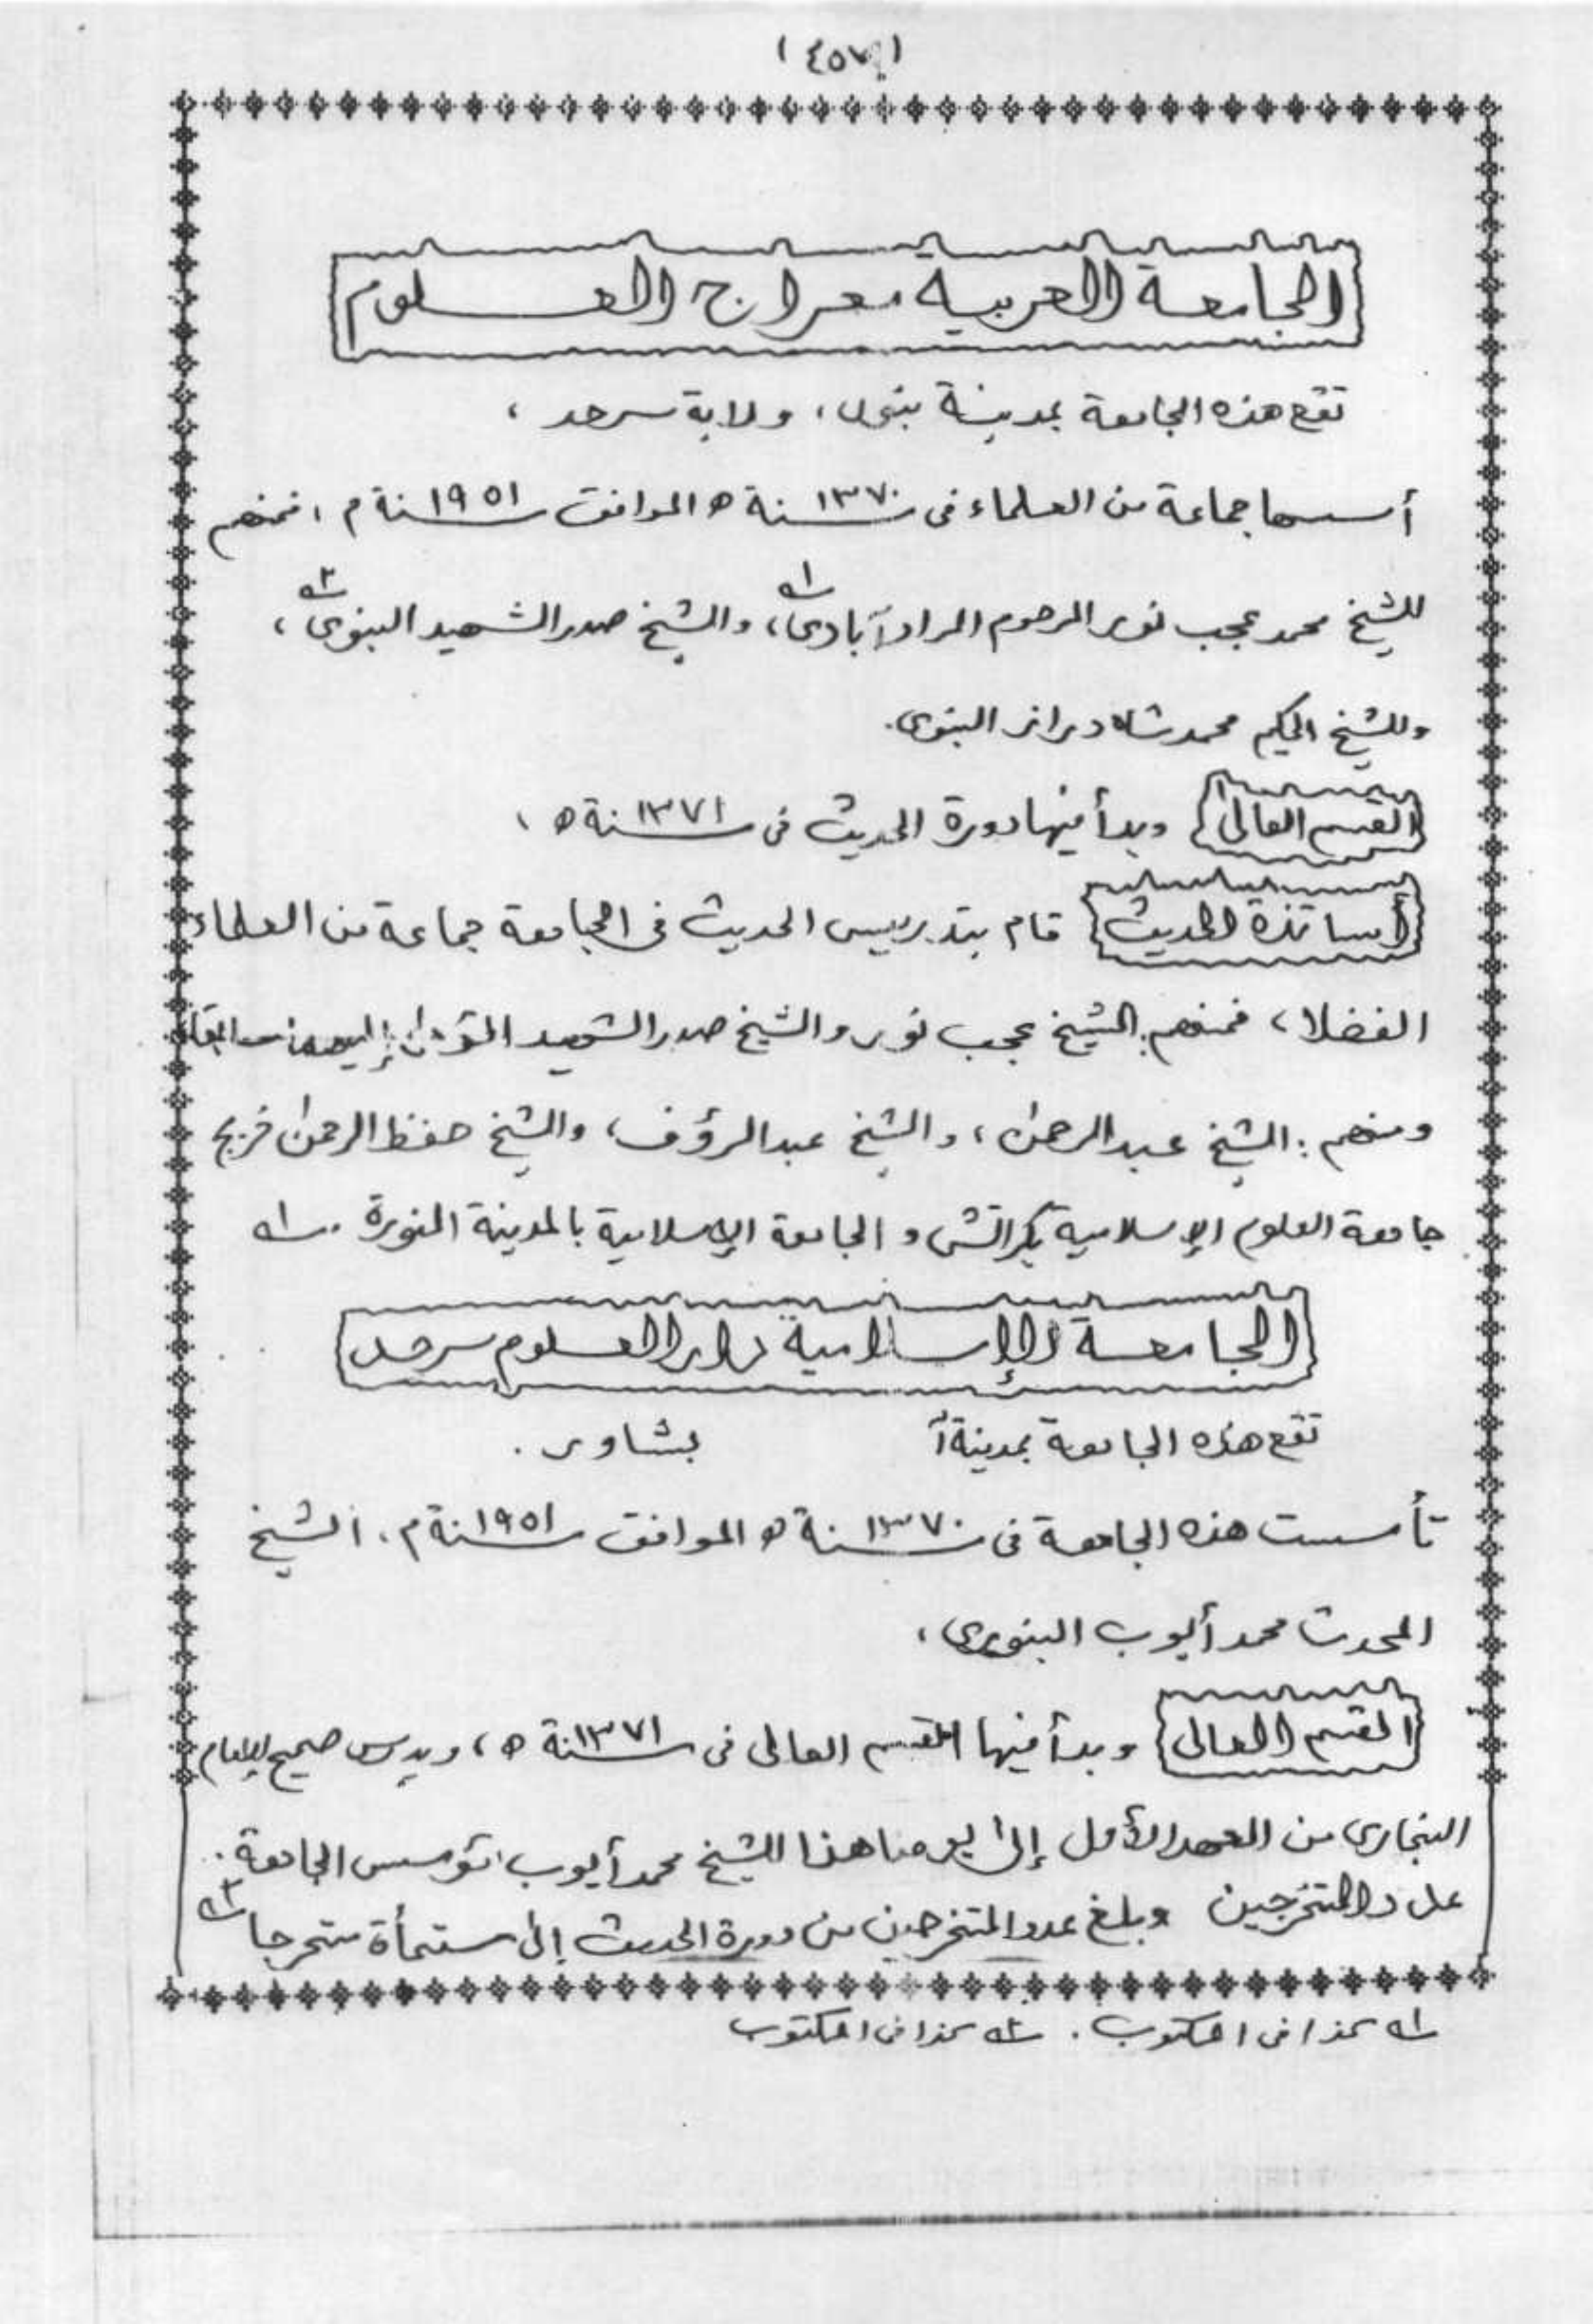 (٤٥٧)
الجامعة العربية معراج العلوم
تقع هذه الجامعة بمدينة بنوں، ولاية سرحد،
أسسها جماعة من العلماء فى سنة ١٣٧٠ ه الموافق سنة ١٩٥١ م، فمنهم
للشيخ محمد عجب نور المرحوم المرادآبادى، ١ه والشيخ صدر الشهيد البنوى، ٢ه
وللشيخ الحكيم محمد شاه دراز البنوى.
القسم العالى وبدأ فيها دورة الحديث فى سنة ١٣٧١ ه،
أساتذة الحديث قام بتدريس الحديث فى الجامعة جماعة من العلماء
الفضلاء، فمنهم: الشيخ عجب نور والشيخ صدر الشهيد
ومنهم: الشيخ عبد الرحمن، والشيخ عبد الرؤف، والشيخ حفظ الرحمن خريج
جامعة العلوم الإسلامية بكراتشى و الجامعة الإسلامية بالمدينة المنورة. ١ه
الجامعة الإسلامية دار العلوم سرحد
تقع هذه الجامعة بمدينة بشاور.
تأسست هذه الجامعة فى سنة ١٣٧٠ ه الموافق سنة ١٩٥١ م، الشيخ
المحدث محمد أيوب البنورى،
القسم العالى وبدأ فيها القسم العالى فى سنة ١٣٧١ ه، ويدرس صحيح للإمام
البخارى من العهد الأول إلى يومنا هذا للشيخ محمد أيوب مؤسس الجامعة.
عدد المتخرجين وبلغ عدد المتخرجين من دورة الحديث إلى ستمأة متخرجا ٢ه
١ه كذا فى المكتوب. ٢ه كذا فى المكتوب